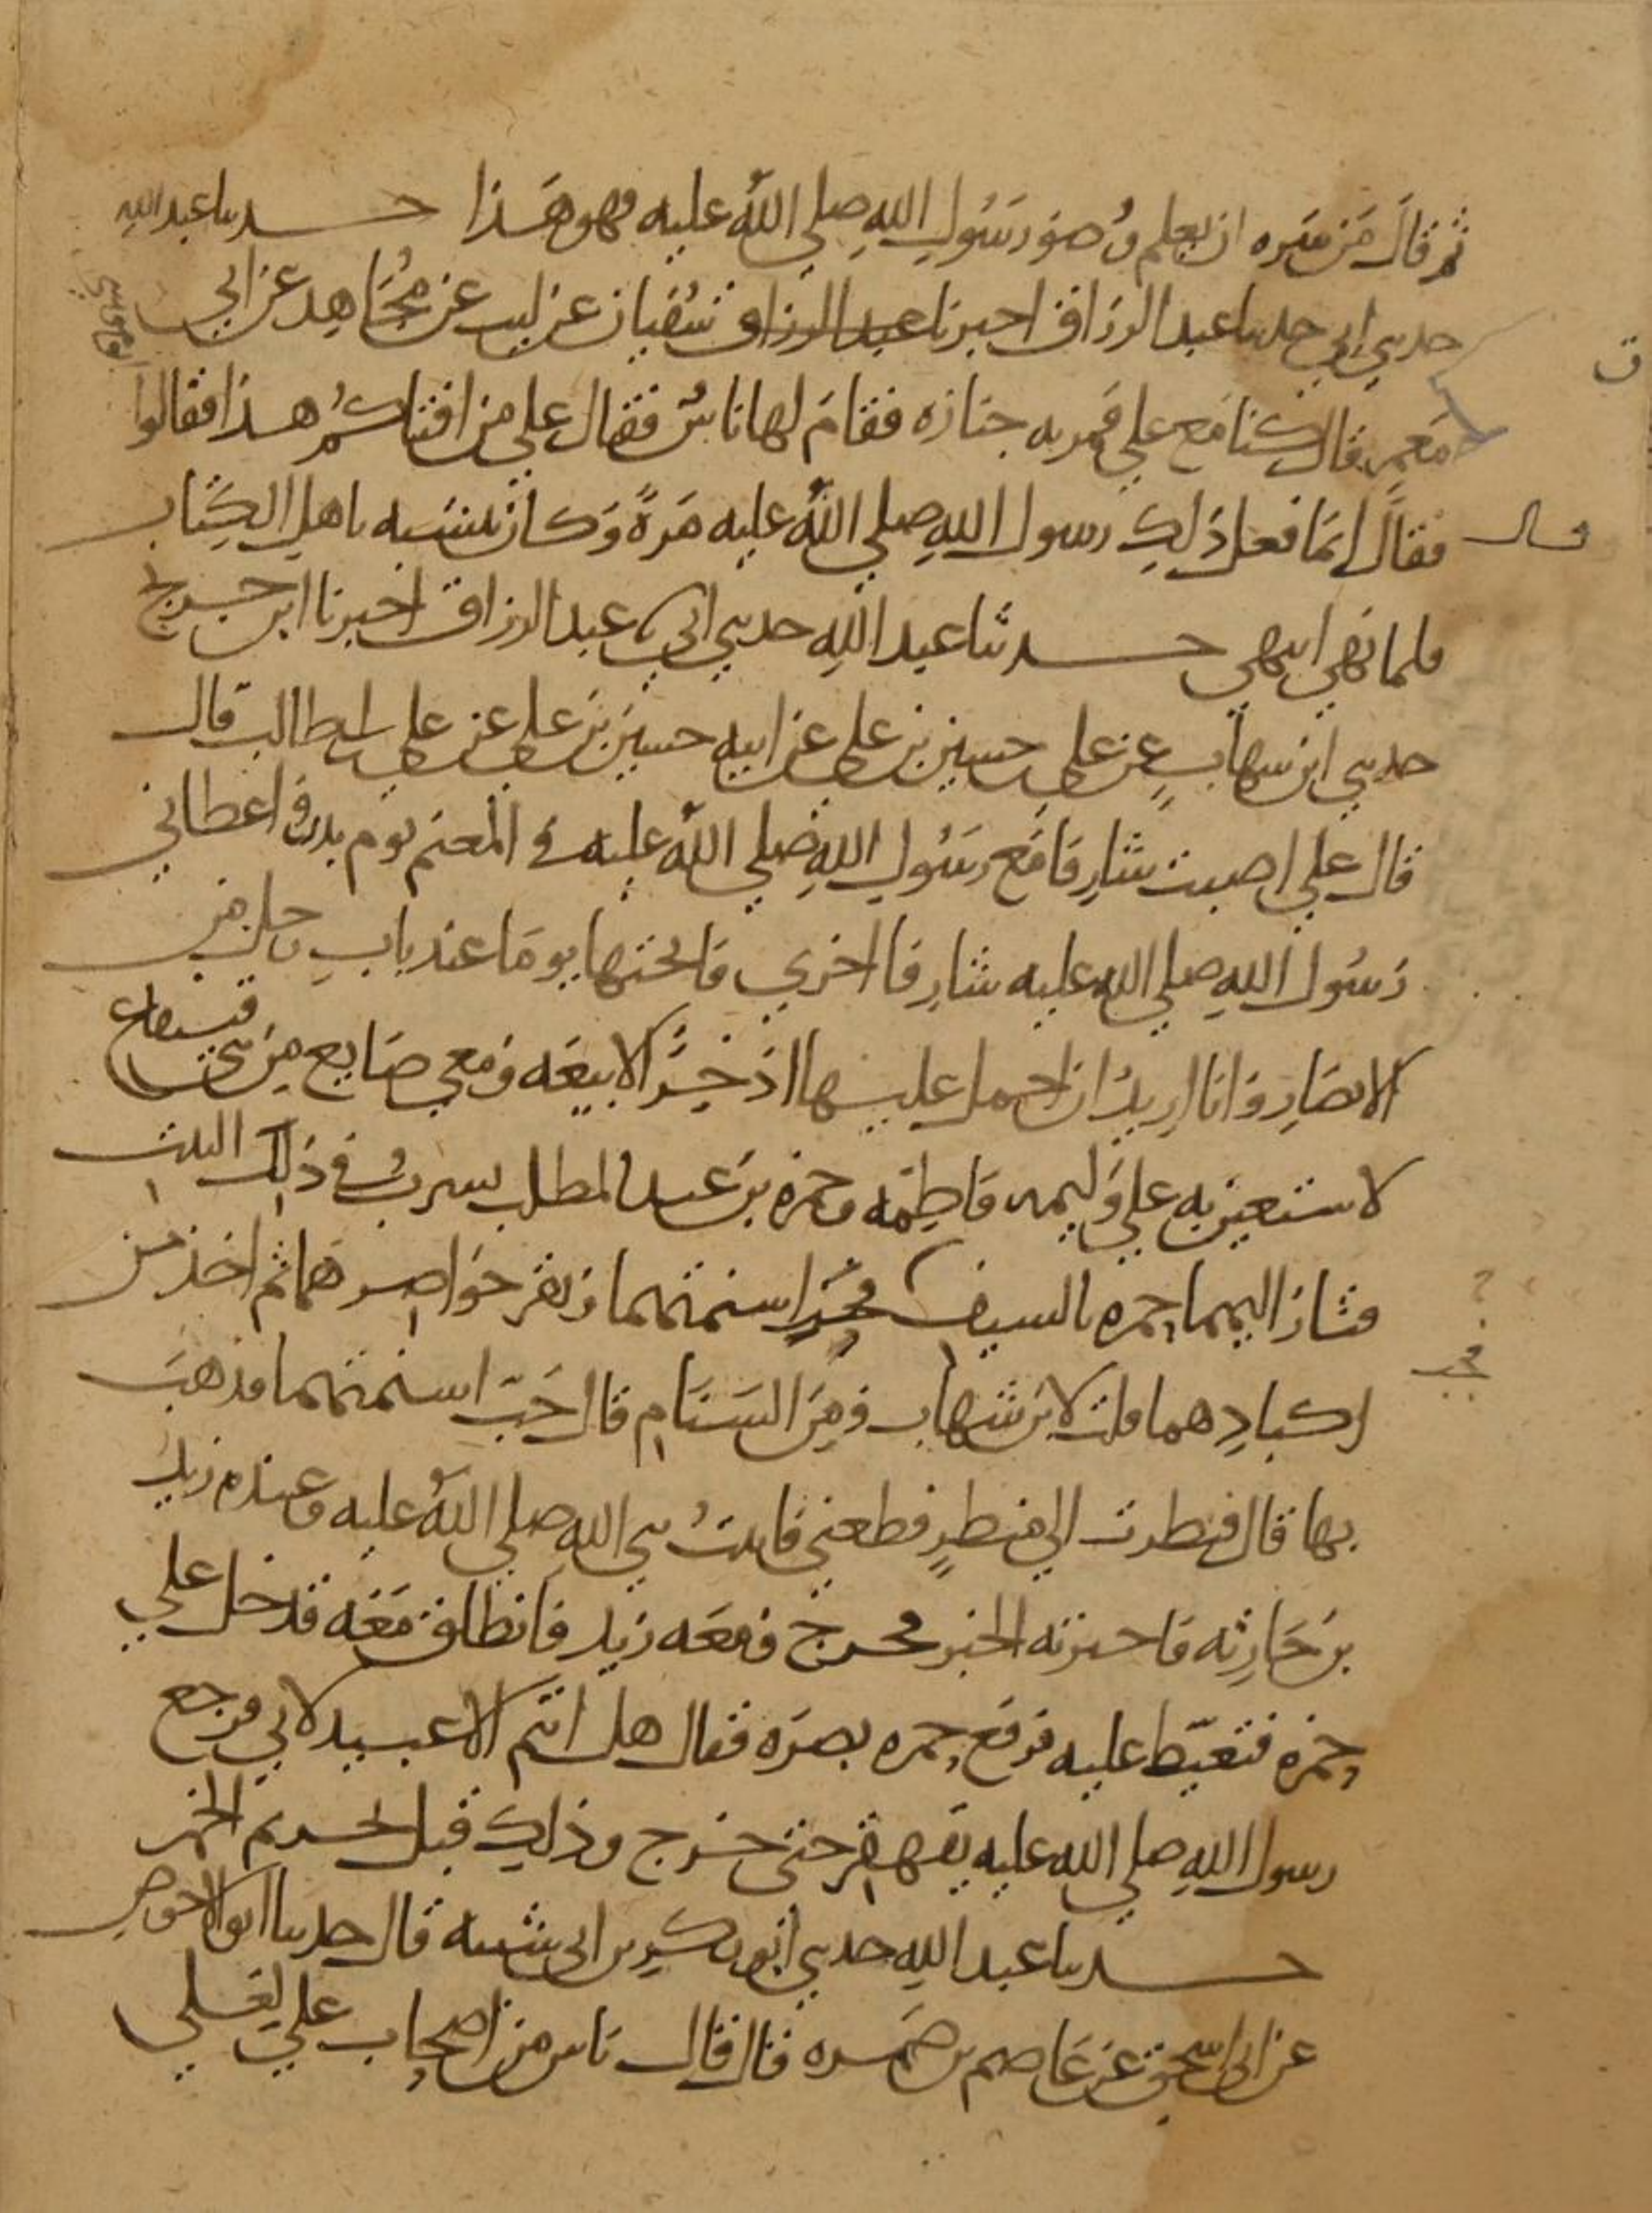 ثم قال من سره ان يعلم وضو رسول الله صلي الله عليه فهو هذا حدثنا عبد الله
حدثني ابي حدثنا عبد الرزاق اخبرنا عبد الرزاق سفيان عن ليث عن مجاهد عن ابي
معمر قال كنا مع علي فمر به جنازه فقام لها ناس فقال علي من افتاكم هذا فقالوا
ابو موسي
فقال انما فعل ذلك رسول الله صلي الله عليه مرة وكان يتشبه باهل الكتاب
قال
فلما نهي انتهي حدثنا عبد الله حدثني ابي نا عبد الرزاق اخبرنا ابن جريج
حدثني ابن شهاب عن علي بن حسين بن علي عن ابيه حسين بن علي عن علي بن ابي طالب قال
قال علي اصبت شارفا مع رسول الله صلي الله عليه في المغنم يوم بدر واعطاني
رسول الله صلي الله عليه شارفا اخري فانختها يوما عند باب رجل من
الانصار وانا اريد ان احمل عليها اذخرا لابيعه ومعي صايغ من بني قينقاع
لاستعين به علي وليمه فاطمه وحمزه بن عبد المطلب يشرب في ذلك البيت
فثار اليهما حمزه بالسيف فجب اسنمتهما وبقر خواصرهما ثم اخذ من
فجب
اكبادهما قلت لابن شهاب ومن السنام قال جب اسنمتهما فذهب
بها قال فنظرت الي منظر فظعني فاتيت نبي الله صلي الله عليه وعنده زيد
بن حارثه فاخبرته الخبر فخرج ومعه زيد فانطلق معه فدخل علي
حمزه فتغيظ عليه فرفع حمزه بصره فقال هل انتم الا عبيد لابي فرجع
رسول الله صلي الله عليه يقهقر حتى خرج وذلك قبل تحريم الخمر
حدثنا عبد الله حدثني ابو بكر بن ابي شيبه قال حدثنا ابو الاحوص
عن ابي اسحق عن عاصم بن ضمره قال قال ناس من اصحاب علي لعلي